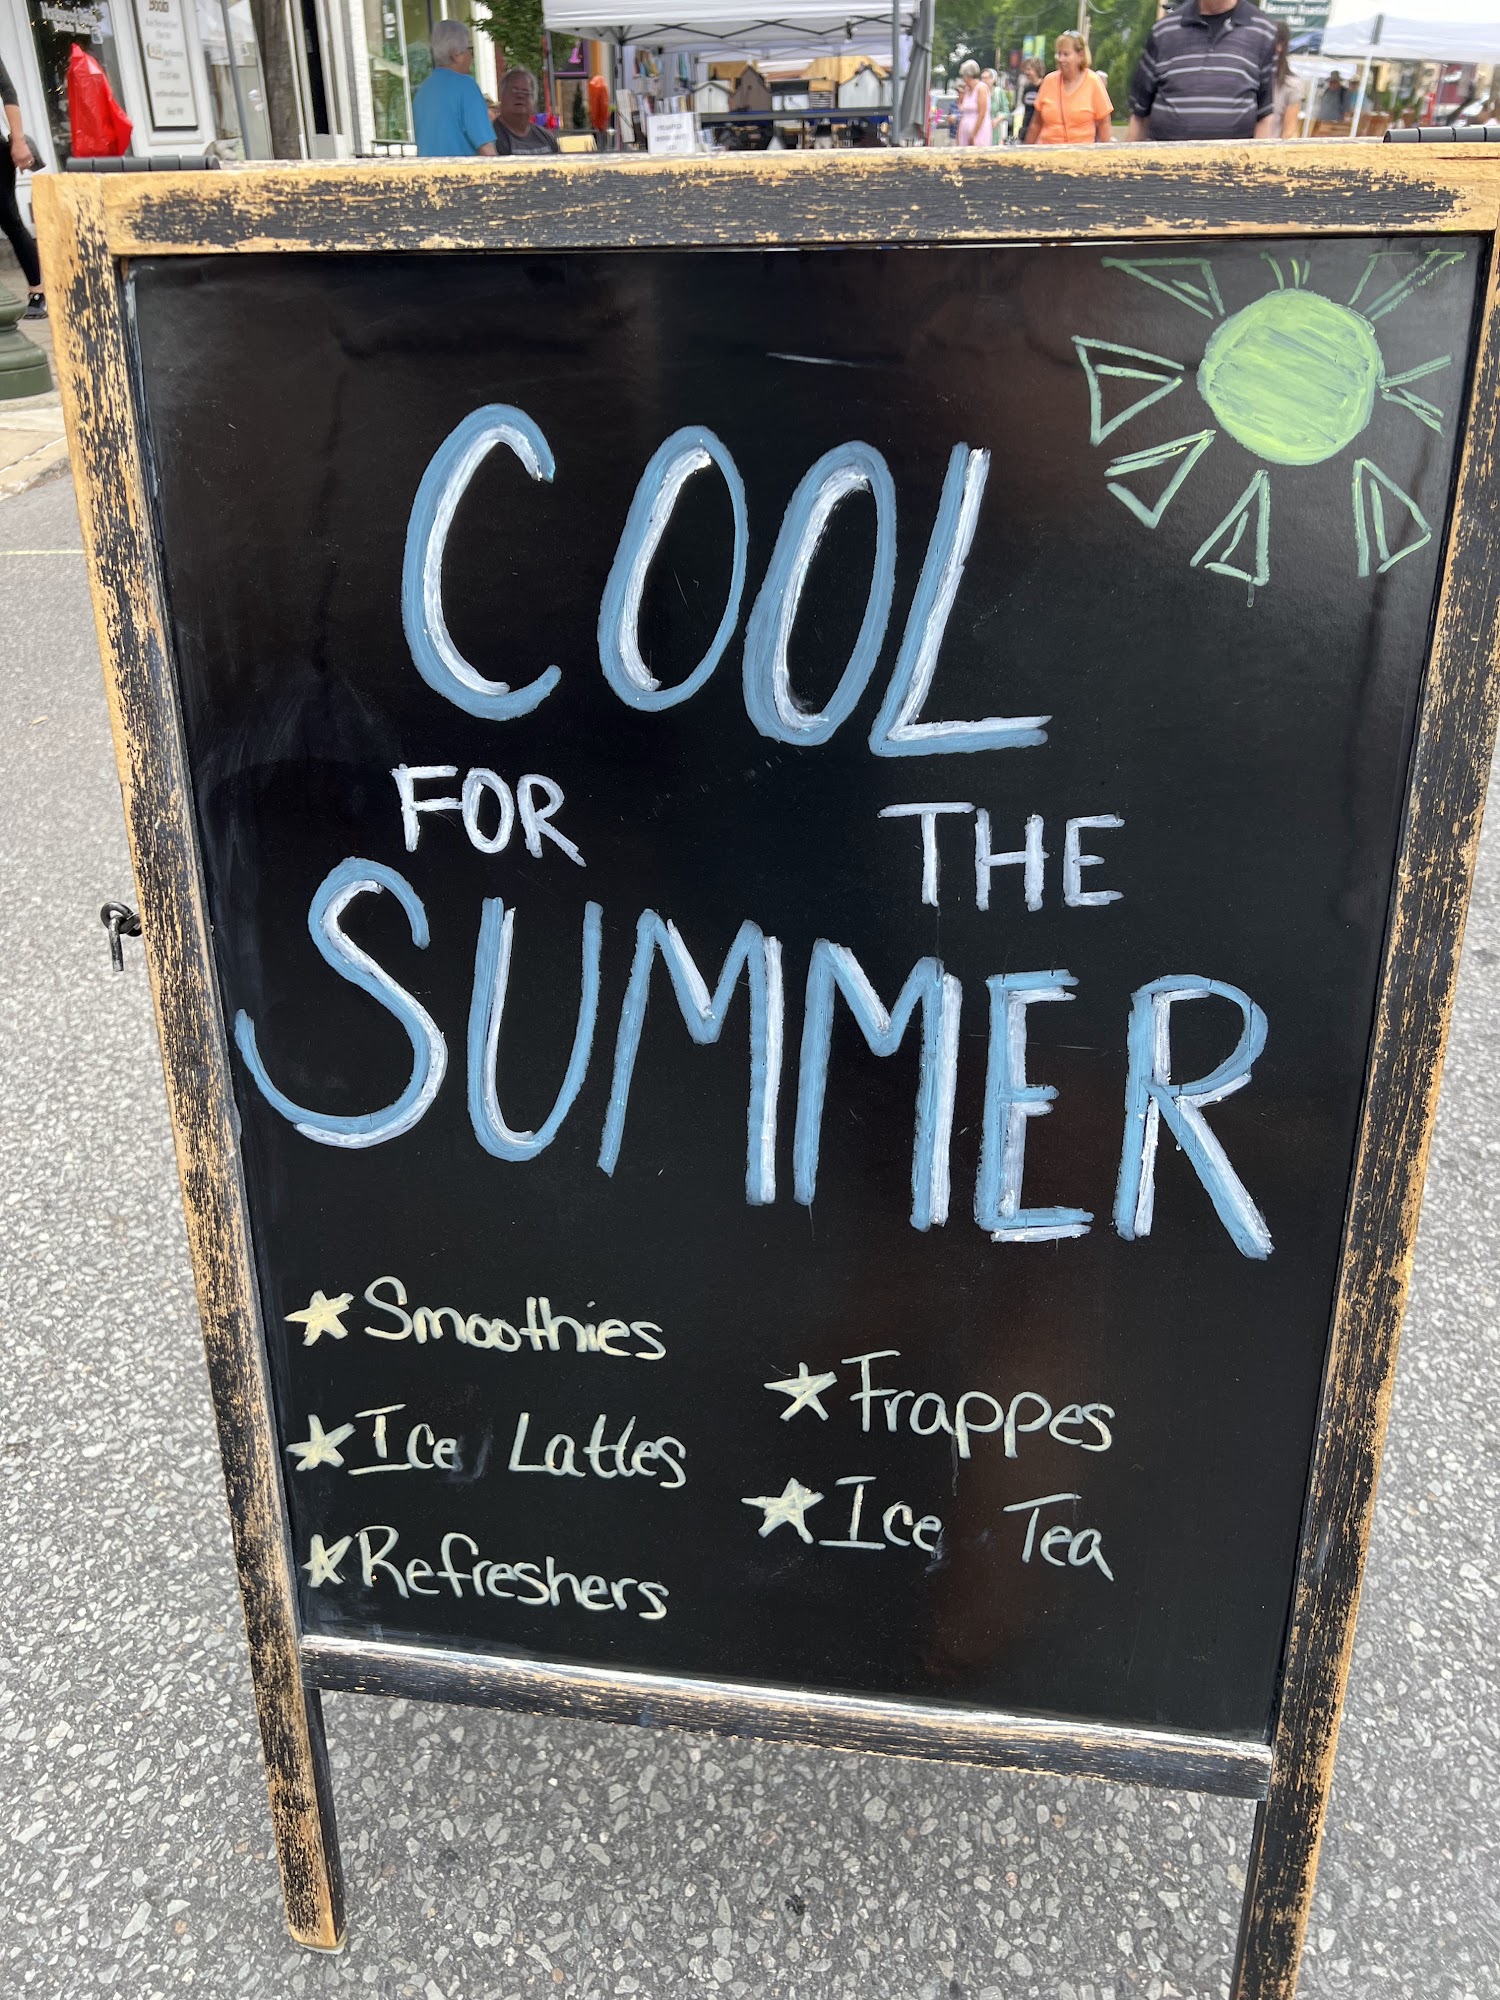 COOL
FOR THE
SUMMER
Smoothies
Ice Lattes
Refreshers
Frappes
Ice Tea